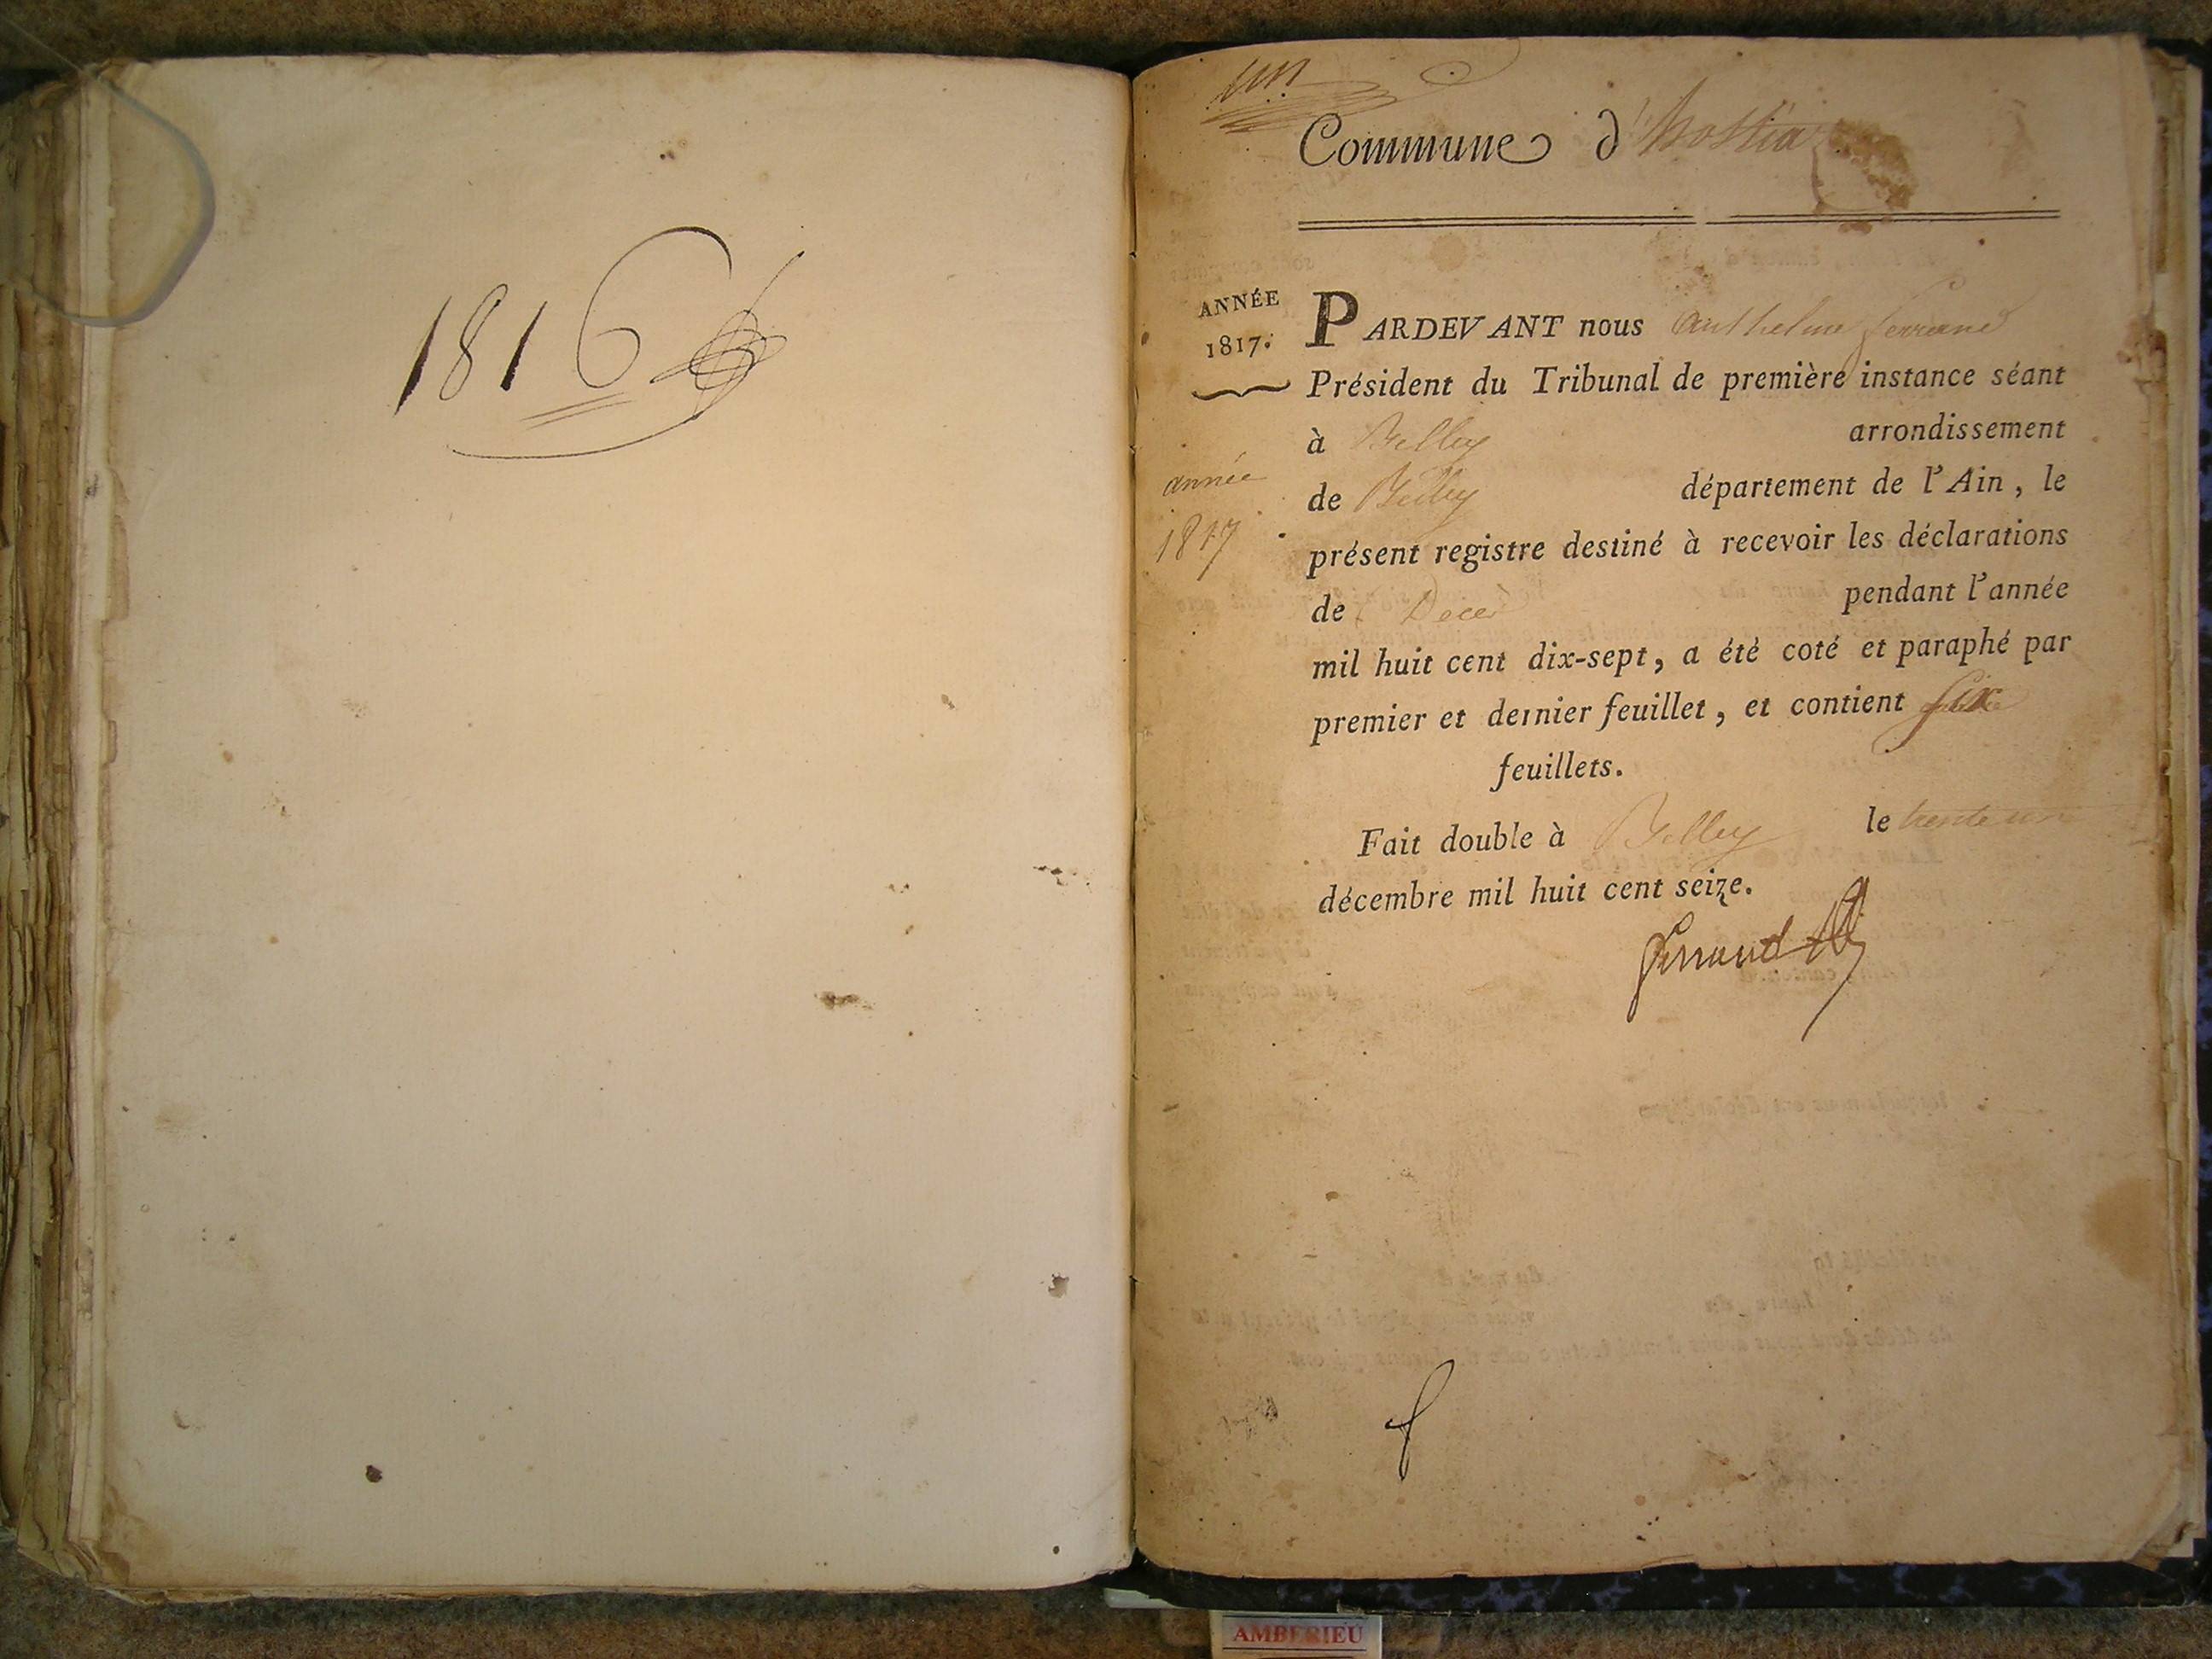 1816
un
Commune d'hostia
ANNÉE
1817.
PARDEVANT nous anthelme ferrand
Président du Tribunal de première instance séant
à Belley arrondissement
de Belley département de l'Ain, le
année
1817
présent registre destiné à recevoir les déclarations
de Décès pendant l'année
mil huit cent dix-sept, a été coté et paraphé par
premier et dernier feuillet, et contient six
feuillets.
Fait double à Belley le trente un
décembre mil huit cent seize.
ferrand
AMBERIEU